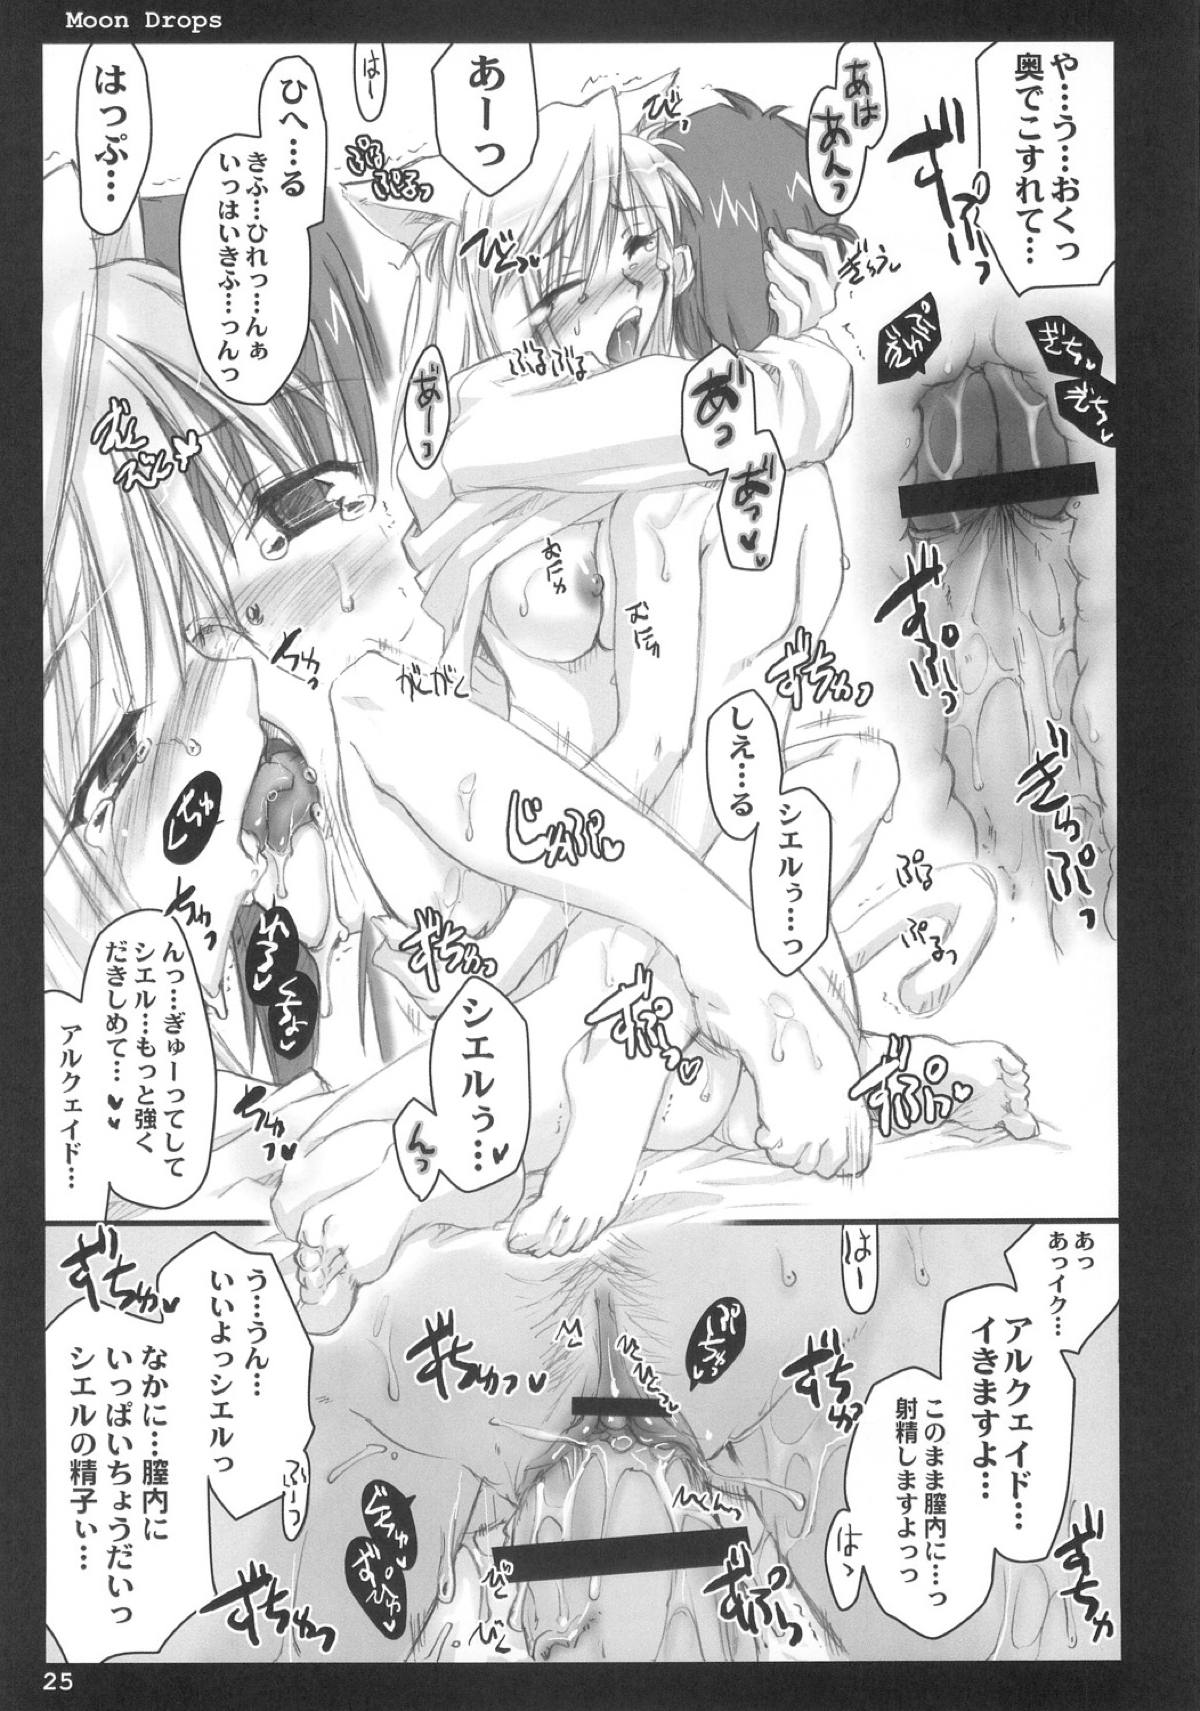 Moon Drops
や…う…おくっ
奥でこすれて…
あは
あんっ
あーっ
はー
ひへ…る
きふ…ひれっ…んぁ
いっはいきふ…っんっ
はっぷ…
ぷるぷるっ
びくっ
ぎゅうっ
ぶるぶる
あ゛ーっ
あ゛っ
あ゛っ
むにゅ
むにゅ
ちゅっ
がくがく
ずちゅっ
しえ…る
シエルぅ…っ
じゅぷっ
ぷる
ぷるっ
ずちゅっ
シエルぅ…
んっ
んっ…ぎゅーってして
シエル…もっと強く
だきしめて…
アルクェイド…
ちゅっ
あっ
あっイク…
アルクェイド…
イきますよ…
このまま膣内に…っ
射精しますよっっ
はー
はー
う…うん…
いいよっシエルっ
ふーっ
なかに…膣内に
いっぱいちょうだいっ
シエルの精子い…
ずちゅ
ずちゅっ
ぐちゅっ
25